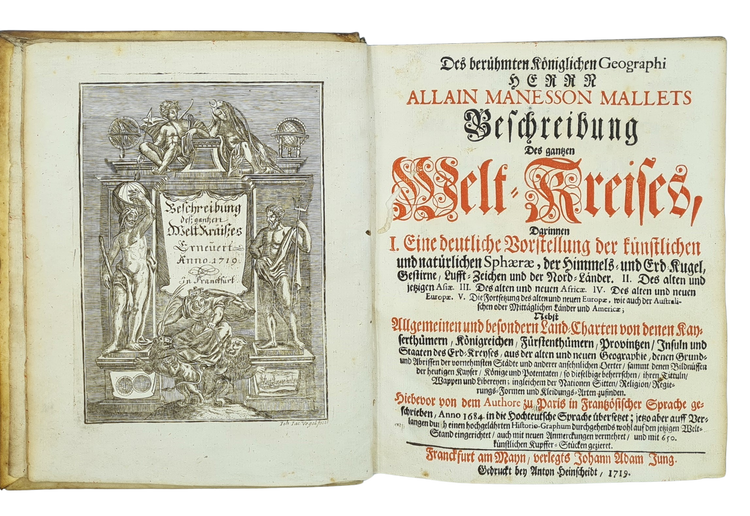 Beschreibung
des gantzen
Welt Kraises
Erneuert
Anno. 1719.
in Franckfurt
Des berühmten Königlichen Geographi
HERRN
ALLAIN MANESSON MALLETS
Beschreibung
Des gantzen
Welt-Kreises,
Darinnen
I. Eine deutliche Vorstellung der künstlichen
und natürlichen Sphæræ, der Himmels- und Erd-Kugel,
Gestirne, Lufft-Zeichen und der Nord-Länder. II. Des alten und
jetzigen Asiæ. III. Des alten und neuen Africæ. IV. Des alten und neuen
Europæ. V. Die Fortsetzung des alten und neuen Europæ, wie auch der Australi-
schen oder Mittäglichen Länder und Americæ;
Nebst
Allgemeinen und besondern Land-Charten von denen Kay-
serthümern, Königreichen, Fürstenthümern, Provintzen, Insuln und
Staaten des Erd-Kreyses, aus der alten und neuen Geographie, denen Grund-
und Abrissen der vornehmsten Städte und anderer ansehnlichen Oerter, sammt denen Bildnüssen
der heutigen Kayser, Könige und Potentaten, so dieselbige beherrschen, ihren Tituln,
Wappen und Libereyen; ingleichem der Nationen Sitten, Religion, Regie-
rungs-Formen und Kleidungs-Arten zufinden.
Hiebevor von dem Authore zu Paris in Frantzösischer Sprache ge-
schrieben, Anno 1684 in die Hochteutsche Sprache übersetzet; jetzo aber auff Ver-
langen durch einen hochgelährten Historio-Graphum durchgehends wohl auf den jetzigen Welt-
Stand eingerichtet, auch mit neuen Anmerckungen vermehret, und mit 650.
künstlichen Kupffer-Stücken gezieret.
Franckfurt am Mayn, verlegts Johann Adam Jung.
Gedruckt bey Anton Heinscheidt, 1719.